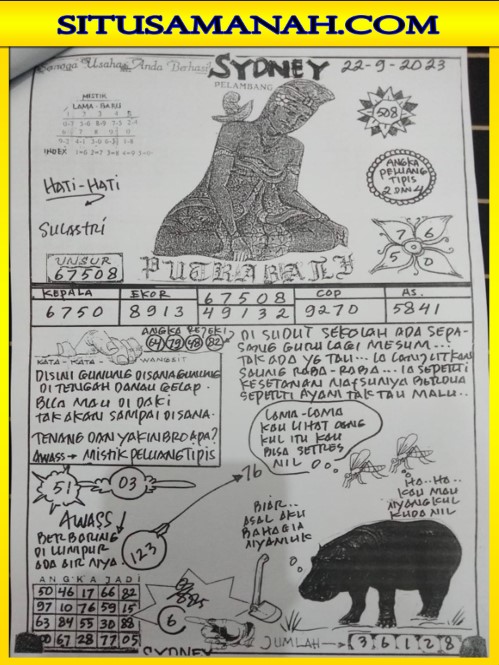 SITUSAMANAH.COM
Semoga Usaha Anda Berhasil
SYDNEY
22-9-2023
PELAMBANG
MISTIK
LAMA - BARU
INDEX
508
ANGKA
PELUANG
TIPIS
2 DAN 4
HATI-HATI
SULASTRI
UNSUR
67508
7 6
5 0
PUTRABALI
KEPALA
EKOR
67508
COP
AS.
6750
8913
49132
9270
5841
ANGKA REJEKI
64 79 48 82
KATA - KATA - WANGSIT
DISINI GUNUNG DISANA GUNUNG
DI TENGAH DANAU GELAP.
BILA MAU DI DAKI
TAK AKAN SAMPAI DISANA.
TENANG DAN YAKIN BRO APA?
AWASS → MISTIK PELUANG TIPIS
DI SUDUT SEKOLAH ADA SEPA-
SANG GURU LAGI MESUM...
TAK ADA YG TAU... IA LANJUTKAN
SALING RABA-RABA... IA SEPERTI
KESETANAN NAFSUNYA BERDUA
SEPERTI AYAM TAK TAU MALU..
LAMA-LAMA
KAU LIHAT DENG
KUL ITU KAU
BISA SETRES
NIL
HA..HA..
KAU MAU
NYANGKUL
KUDA NIL
BIAR..
ASAL AKU
BAHAGIA
NYAMUK
51
03
76
123
AWASS
BERBORING
DI LUMPUR
ADA AIR NYA
ANGKA JADI
50 46 17 66 82
97 10 76 59 15
63 84 55 30 88
00 67 28 77 05
6
JUMLAH → 3 6 1 2 8
SYDNEY